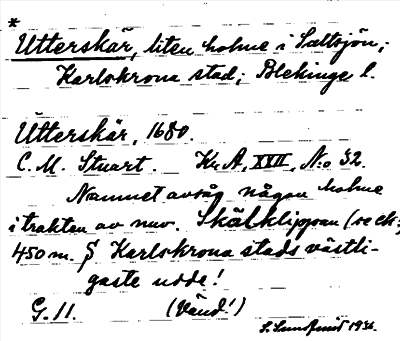 *
Utterskär, liten holme i Saltsjön;
Karlskrona stad; Blekinge l.
Utterskär, 1680.
C. M. Stuart. Kr. A, XVII, N:o 32.
Namnet avsåg någon holme
i trakten av nuv. Skälklippan (se d:o;
450 m. S Karlskrona stads västli-
gaste udde!
G. 11. (Vänd!)
1936.